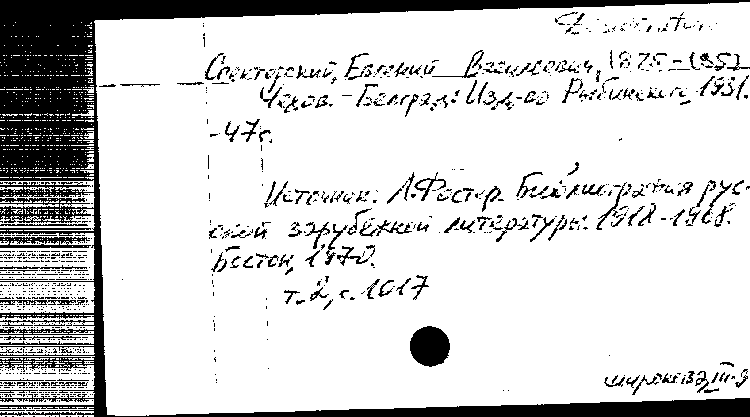 Спекторский, Евгений Васильевич, 1875-1951
Чехов. - Белград: Изд-во Рыбинского, 1931.
-47с.
Источник: Л.Фостер. Библиография рус-
ской зарубежной литературы. 1918-1968.
Бостон, 1970.
т.2, с.1017